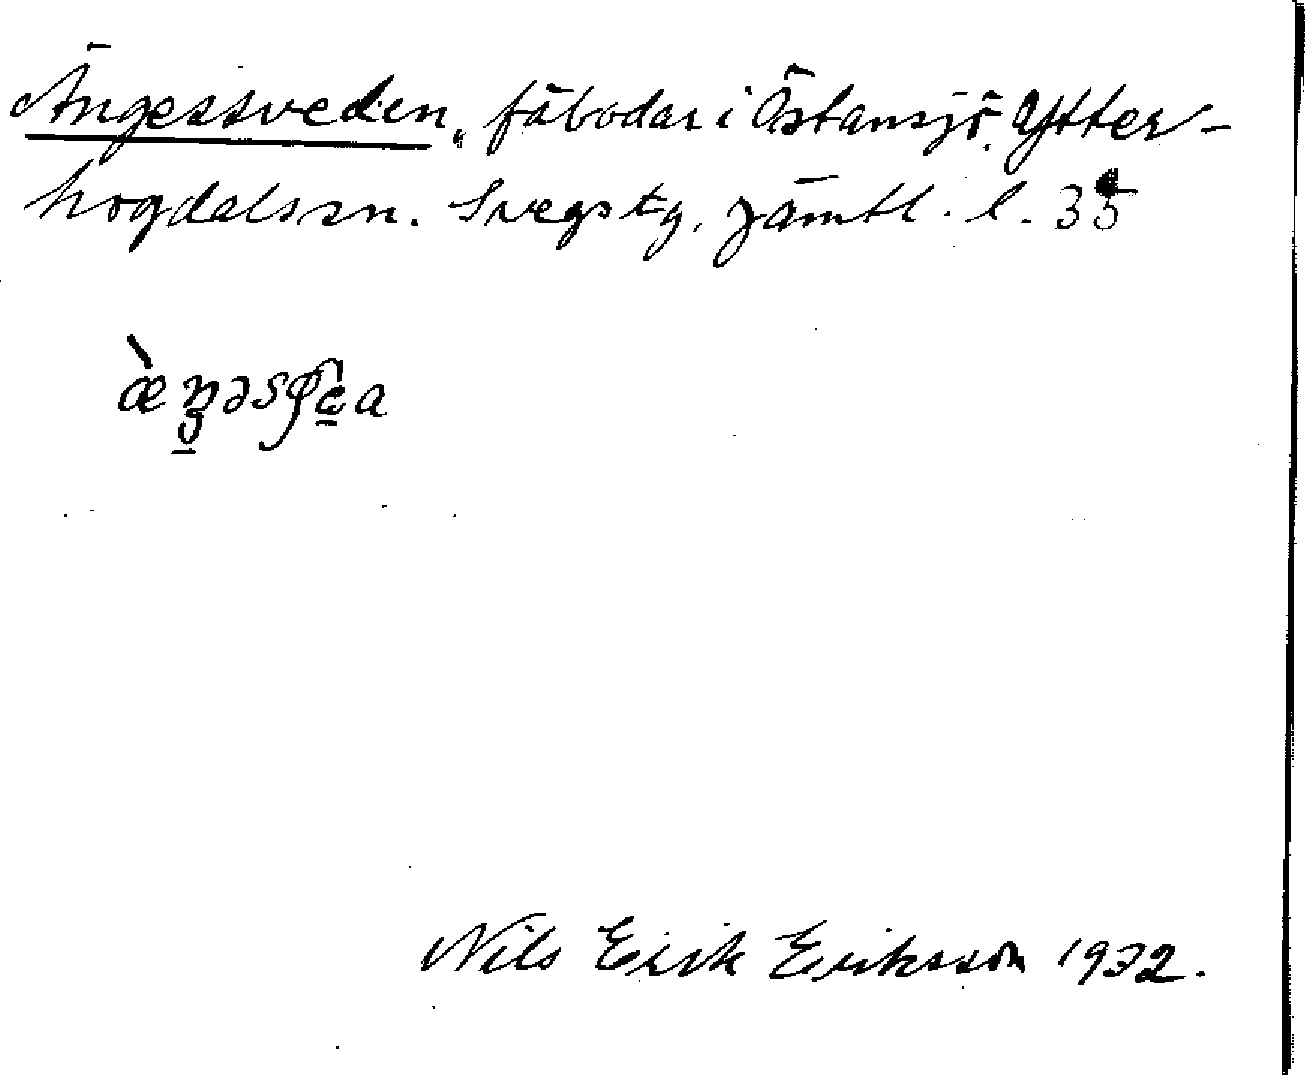 Ängessveden, fäbodar i Östansjö. Ytter-
hogdals sn. Svegs tg, Jämtl. l. 35
Nils Erik Eriksson 1932.